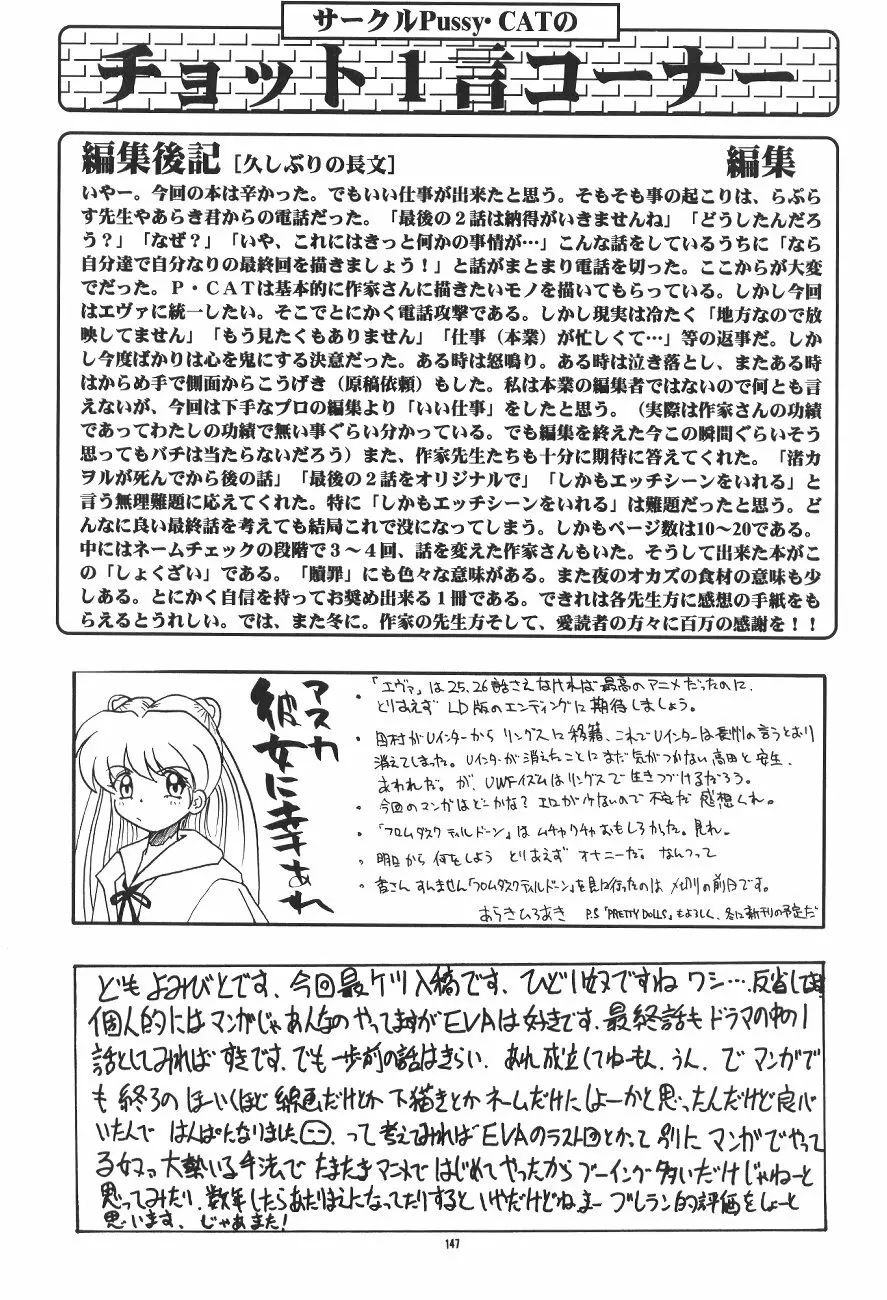 サークルPussy・CATの
チョット１言コーナー
編集後記［久しぶりの長文］ 編集
いやー。今回の本は辛かった。でもいい仕事が出来たと思う。そもそも事の起こりは、らぷら
す先生やあらき君からの電話だった。「最後の２話は納得がいきませんね」「どうしたんだろ
う？」「なぜ？」「いや、これにはきっと何かの事情が…」こんな話をしているうちに「なら
自分達で自分なりの最終回を描きましょう！」と話がまとまり電話を切った。ここからが大変
でだった。Ｐ・ＣＡＴは基本的に作家さんに描きたいモノを描いてもらっている。しかし今回
はエヴァに統一したい。そこでとにかく電話攻撃である。しかし現実は冷たく「地方なので放
映してません」「もう見たくもありません」「仕事（本業）が忙しくて…」等の返事だ。しか
し今度ばかりは心を鬼にする決意だった。ある時は怒鳴り。ある時は泣き落とし、またある時
はからめ手で側面からこうげき（原稿依頼）もした。私は本業の編集者ではないので何とも言
えないが、今回は下手なプロの編集より「いい仕事」をしたと思う。（実際は作家さんの功績
であってわたしの功績で無い事ぐらい分かっている。でも編集を終えた今この瞬間ぐらいそう
思ってもバチは当たらないだろう）また、作家先生たちも十分に期待に答えてくれた。「渚カ
ヲルが死んでから後の話」「最後の２話をオリジナルで」「しかもエッチシーンをいれる」と
言う無理難題に応えてくれた。特に「しかもエッチシーンをいれる」は難題だったと思う。ど
んなに良い最終話を考えても結局これで没になってしまう。しかもページ数は10～20である。
中にはネームチェックの段階で３～４回、話を変えた作家さんもいた。そうして出来た本がこ
の「しょくざい」である。「贖罪」にも色々な意味がある。また夜のオカズの食材の意味も少
しある。とにかく自信を持ってお奨め出来る１冊である。できれは各先生方に感想の手紙をも
らえるとうれしい。では、また冬に。作家の先生方そして、愛読者の方々に百万の感謝を！！
アスカ
彼女に幸あれ
・「エヴァ」は25、26話さえなければ最高のアニメだったのに、
とりあえず LD版のエンディングに期待しましょう。
・田村がUインターからリングスに移籍、これでUインターは長州の言うとおり
消えてしました。Uインターが消えたことにまだ気がつかない高田と安生、
あわれだ。が、UWFイズムはリングスで生きつづけるだろう。
・今回のマンガはどーかな？エロが少ないので不安だ 感想くれ。
・「フロムダスクティルドーン」はムチャクチャおもしろかった。見れ。
・明日から何をしよう とりあえず オナニーだ。なんつって
・皆さんすんません「フロムダスクティルドーン」を見に行ったのは〆切りの前日です。
あらきひろあき P.S「PRETTY DOLLS」もよろしく、冬に新刊の予定だ
どもよみびとです、今回最ケツ入稿です、ひどい奴ですねワシ…。反省してます
個人的にはマンガじゃあんなのやってますがEVAは好きです、最終話もドラマの中の1
話としてみればすきです、でも一歩前の話はきらい、あれ成立してねーもん、うん、でマンガで
も終ろのほーいくほど線画だけとか下描きとかネームだけにしよーかと思ったんだけど良心
いたんで はんぱになりました、って考えてみればEVAのラスト回とかって別にマンガでやって
る奴ァ大勢いる手法でたまたまアニメではじめてやったからブーイング多いだけじゃねーと
思ってみたり、数年したらあたりまえになってたりするといやだけどねまーブレラン的評価をしよーと
思います、じゃあまた！
147